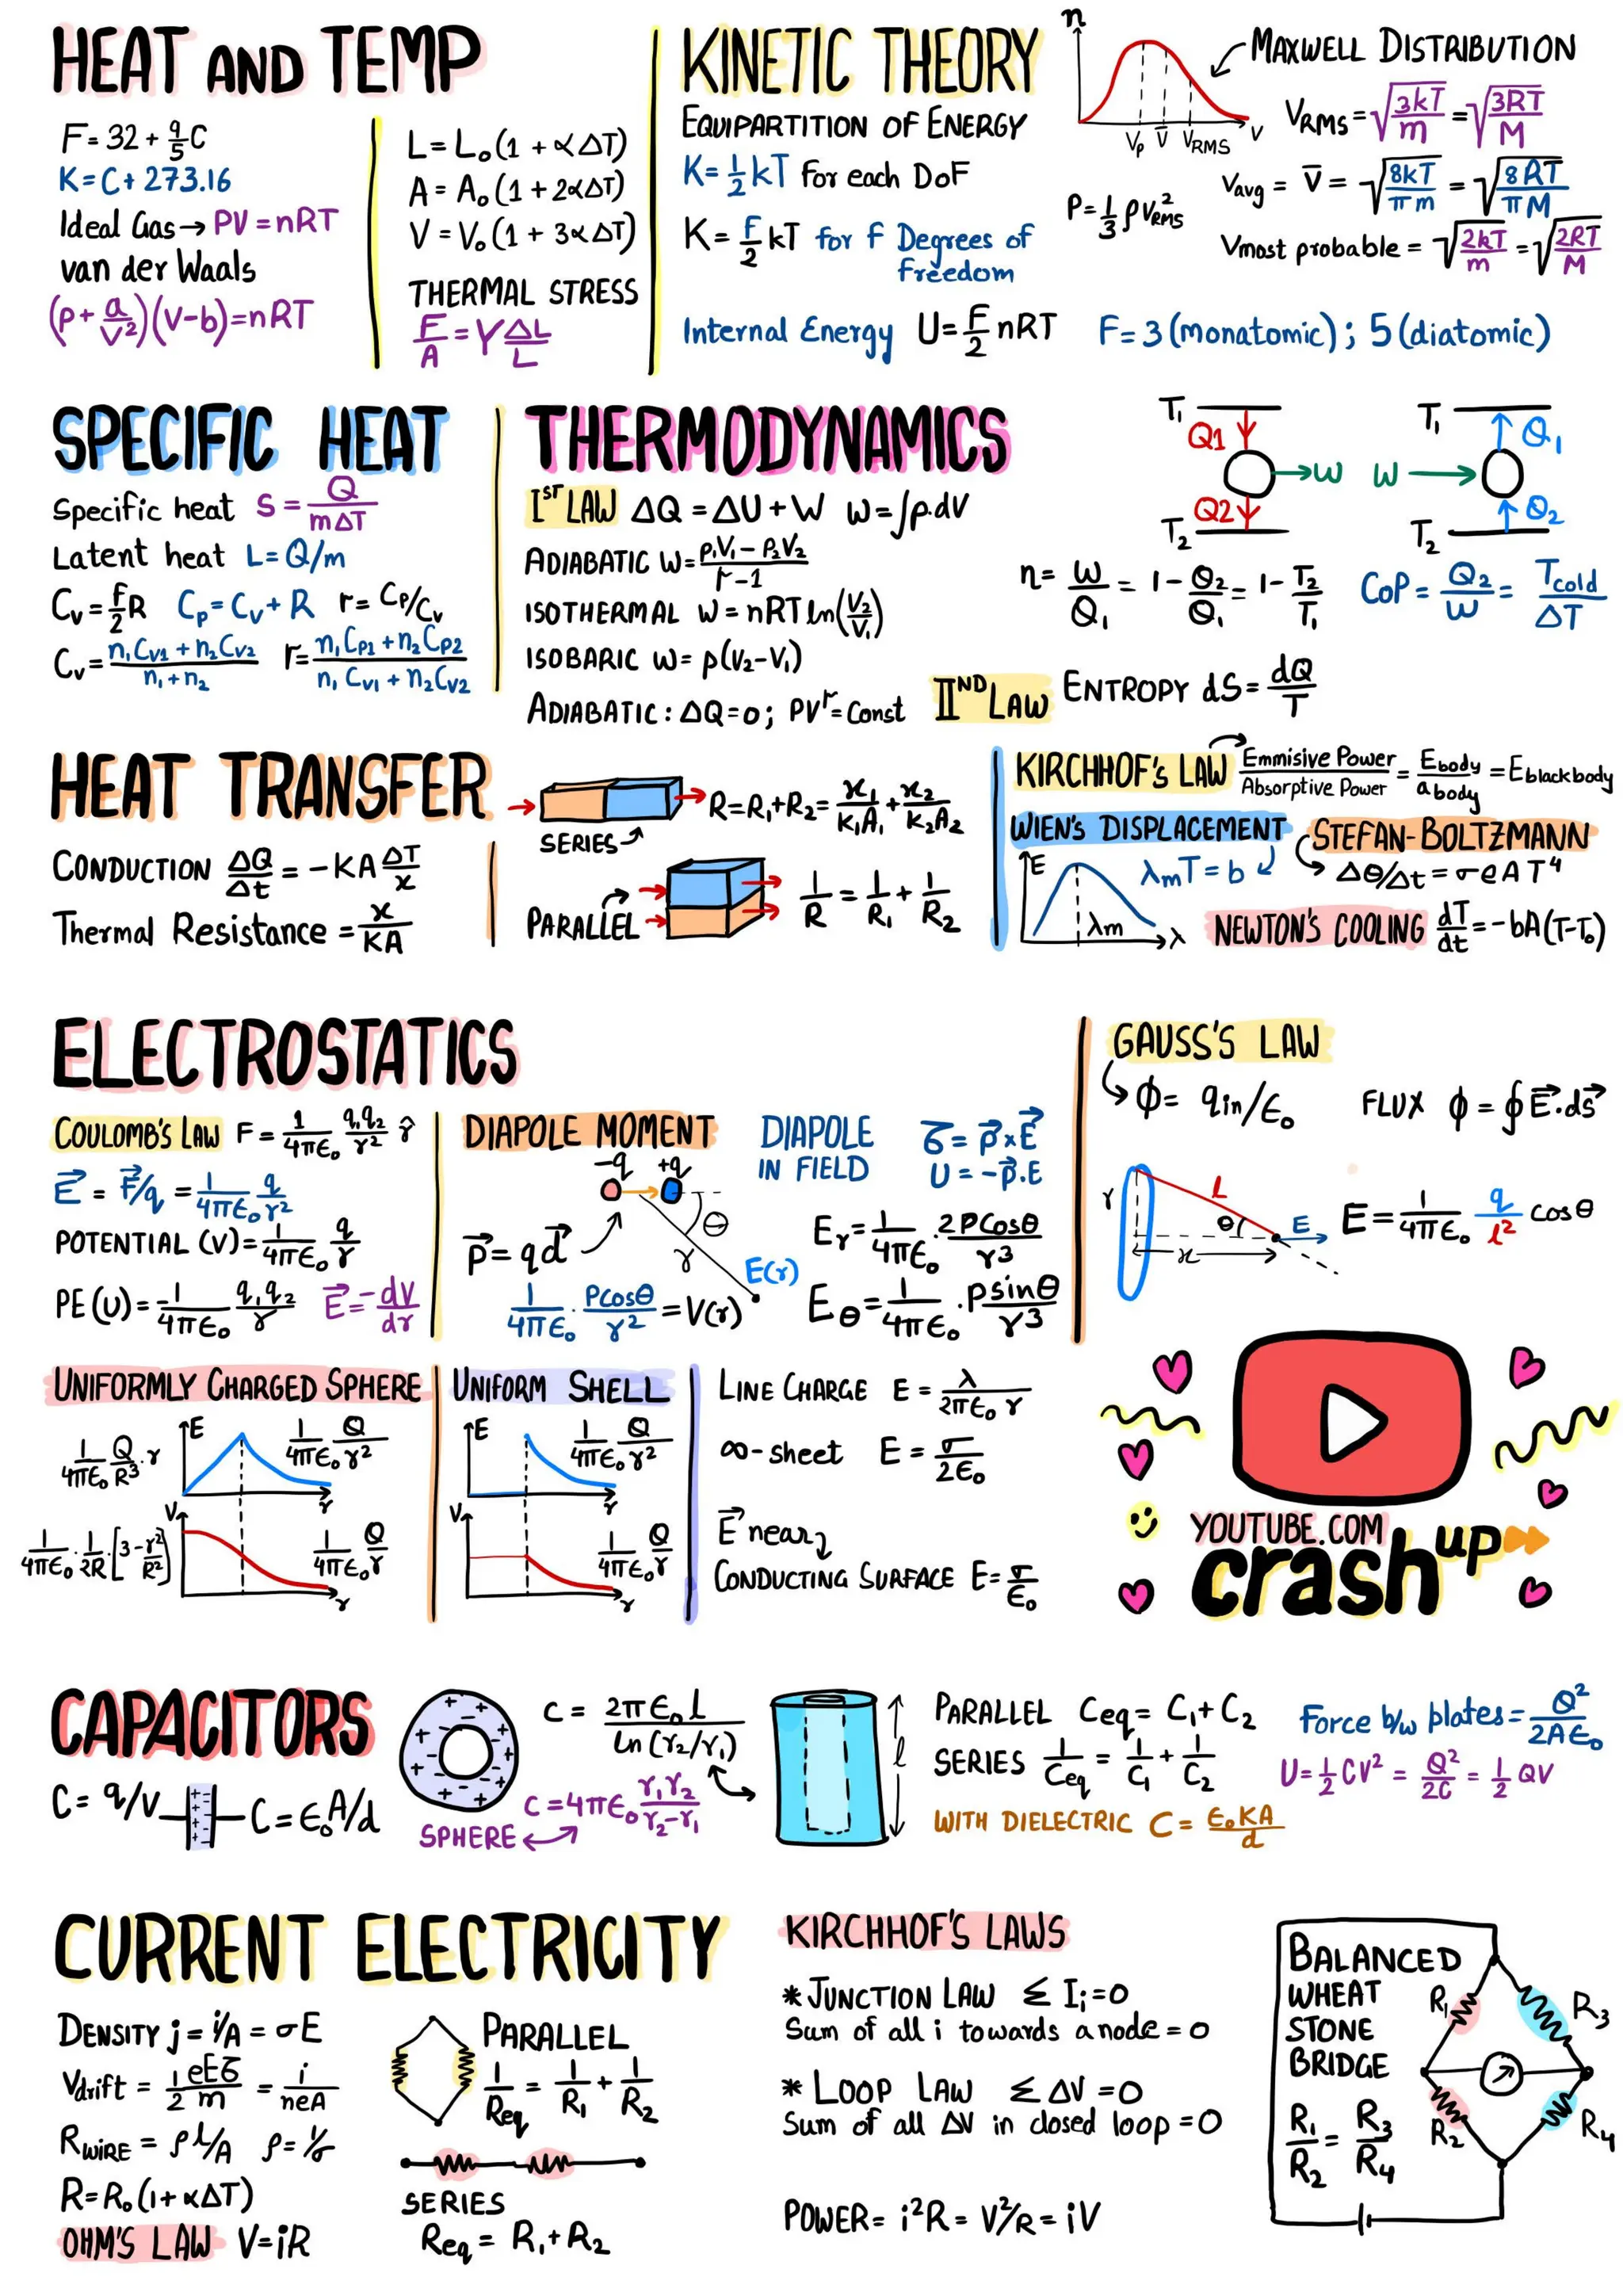 HEAT AND TEMP
F = 32 + 9/5 C
K = C + 273.16
Ideal Gas → PV = nRT
van der Waals
(p + a/V²)(V-b) = nRT
L = L₀(1 + α ΔT)
A = A₀(1 + 2αΔT)
V = V₀(1 + 3αΔT)
THERMAL STRESS
F/A = Y ΔL/L
KINETIC THEORY
EQUIPARTITION OF ENERGY
K = 1/2 kT for each DoF
K = f/2 kT for f Degrees of freedom
Internal Energy U = f/2 nRT F = 3 (monatomic) ; 5 (diatomic)
n
Vp V̄ VRMS V
MAXWELL DISTRIBUTION
VRMS = √(3kT/m) = √(3RT/M)
Vavg = V̄ = √(8kT/πm) = √(8RT/πM)
P = 1/3 ρ V²RMS
Vmost probable = √(2kT/m) = √(2RT/M)
SPECIFIC HEAT
Specific heat S = Q/mΔT
Latent heat L = Q/m
Cv = f/2 R Cp = Cv + R r = Cp/Cv
Cv = (n₁Cv1 + n₂Cv2)/(n₁ + n₂) r = (n₁Cp1 + n₂Cp2)/(n₁Cv1 + n₂Cv2)
THERMODYNAMICS
Iˢᵀ LAW ΔQ = ΔU + W W = ∫p.dV
ADIABATIC W = (P₁V₁ - P₂V₂)/(r - 1)
ISOTHERMAL W = nRT ln(V₂/V₁)
ISOBARIC W = p(V₂-V₁)
ADIABATIC : ΔQ = 0 ; PVʳ = Const
T₁ Q1 W Q2 T₂
T₁ Q₁ W Q₂ T₂
η = W/Q₁ = 1 - Q₂/Q₁ = 1 - T₂/T₁
CoP = Q₂/W = Tcold/ΔT
IIᴺᴰ LAW ENTROPY dS = dQ/T
HEAT TRANSFER
CONDUCTION ΔQ/Δt = -KA ΔT/x
Thermal Resistance = x/KA
SERIES R = R₁ + R₂ = x₁/K₁A₁ + x₂/K₂A₂
PARALLEL 1/R = 1/R₁ + 1/R₂
KIRCHHOF'S LAW Emmisive Power/Absorptive Power = Ebody/abody = Eblackbody
WIEN'S DISPLACEMENT
E λm λ
λmT = b
STEFAN-BOLTZMANN
ΔQ/Δt = σeAT⁴
NEWTON'S COOLING dT/dt = -bA(T-T₀)
ELECTROSTATICS
COULOMB'S LAW F = 1/4πϵ₀ q₁q₂/r² r̂
E⃗ = F⃗/q = 1/4πϵ₀ q/r²
POTENTIAL (V) = 1/4πϵ₀ q/r
PE (U) = -1/4πϵ₀ q₁q₂/r E⃗ = -dV/dr
DIAPOLE MOMENT
-q +q
θ
r
E(r)
p⃗ = qd⃗
1/4πϵ₀ . PCosθ/r² = V(r)
DIAPOLE IN FIELD
τ = p⃗ × E⃗
U = -p⃗.E
Er = 1/4πϵ₀ . 2PCosθ/r³
Eθ = 1/4πϵ₀ . Psinθ/r³
GAUSS'S LAW
ϕ = qin/ϵ₀ FLUX ϕ = ∮E⃗.ds⃗
r L θ E x
E = 1/4πϵ₀ q/l² cosθ
UNIFORMLY CHARGED SPHERE
1/4πϵ₀ Q/R³ . r E 1/4πϵ₀ Q/r² r
1/4πϵ₀ . 1/2R . [3 - r²/R²] V 1/4πϵ₀ Q/r r
UNIFORM SHELL
E 1/4πϵ₀ Q/r² r
V 1/4πϵ₀ Q/r r
LINE CHARGE E = λ/2πϵ₀ r
∞-sheet E = σ/2ϵ₀
E⃗ near
CONDUCTING SURFACE E = σ/ϵ₀
YOUTUBE.COM
crashup
CAPACITORS
C = q/V C = ϵ₀A/d
C = 2πϵ₀l/ln(r₂/r₁)
C = 4πϵ₀ r₁r₂/(r₂-r₁)
SPHERE
l
PARALLEL Ceq = C₁ + C₂
SERIES 1/Ceq = 1/C₁ + 1/C₂
WITH DIELECTRIC C = ϵ₀KA/d
Force b/w plates = Q²/2Aϵ₀
U = 1/2 CV² = Q²/2C = 1/2 QV
CURRENT ELECTRICITY
DENSITY j = i/A = σE
Vdrift = 1/2 eEτ/m = i/neA
RWIRE = ρ l/A ρ = 1/σ
R = R₀(1 + αΔT)
OHM'S LAW V = iR
PARALLEL
1/Req = 1/R₁ + 1/R₂
SERIES
Req = R₁ + R₂
KIRCHHOF'S LAWS
* JUNCTION LAW Σ Ii = 0
Sum of all i towards a node = 0
* LOOP LAW Σ ΔV = 0
Sum of all ΔV in closed loop = 0
POWER = i²R = V²/R = iV
BALANCED
WHEAT
STONE
BRIDGE
R₁/R₂ = R₃/R₄
R₁ R₃
R₂ R₄